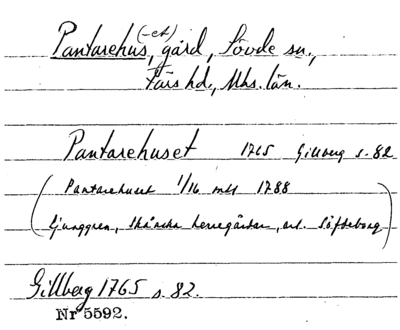 Pantarehus, (-et) gård, Sövde sn.,
Färs hd., Mhs. län.
Pantarehuset 1765 Gillberg s. 82
(Pantarehuset 1/16 mtl 1788
Ljunggren, Skånska herregårdar, art. Söfdeborg)
Gillberg 1765 s. 82.
Nr 5592.